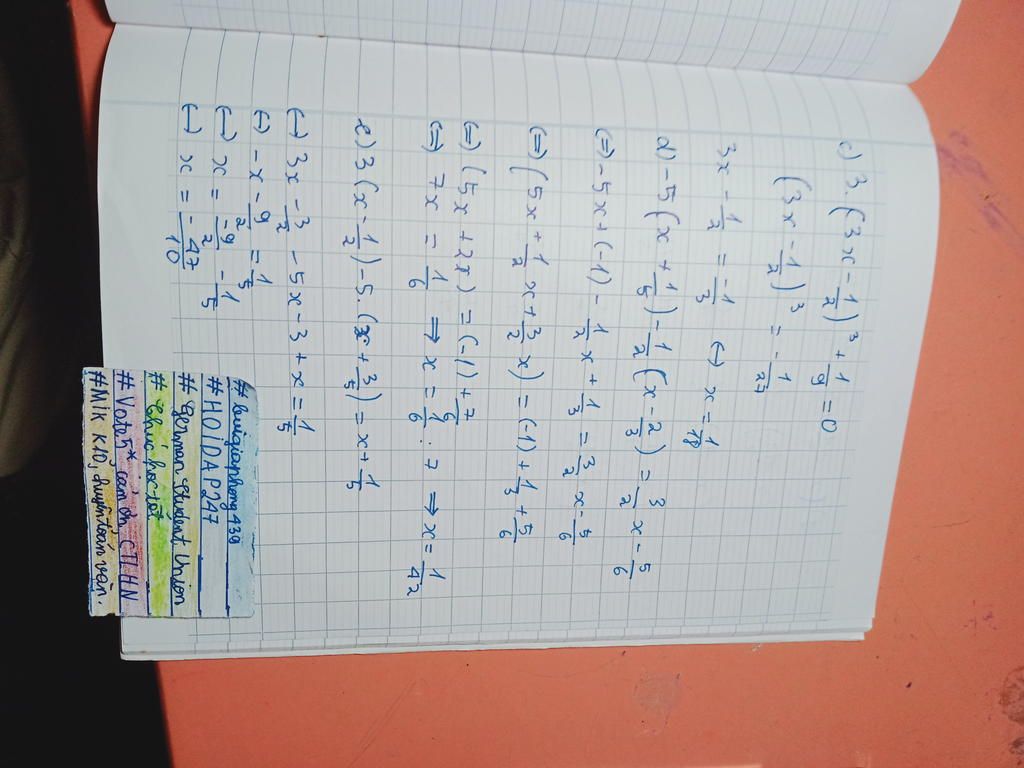 c) 3.(3x - 1/2)³ + 1/9 = 0
(3x - 1/2)³ = -1/27
3x - 1/2 = -1/3 ↔ x = 1/18
d) -5(x + 1/5) - 1/2(x - 2/3) = 3/2 x - 5/6
(=) -5x + (-1) - 1/2 x + 1/3 = 3/2 x - 5/6
(=) (5x + 1/2 x + 3/2 x) = (-1) + 1/3 + 5/6
(=) (5x + 2x) = (-1) + 7/6
(=) 7x = 1/6 ⇒ x = 1/6 : 7 ⇒ x = 1/42
e) 3(x - 1/2) - 5.(x + 3/5) = x + 1/5
(↔) 3x - 3/2 - 5x - 3 + x = 1/5
(↔) -x - 9/2 = 1/5
(↔) x = -9/2 - 1/5
(↔) x = -47/10
#buigiaphong439
#HOIDAP247
#German Student Union
#Chúc học tốt
#Vote 5* cảm ơn CTLHN
#Mik K10, chuyên toán văn.